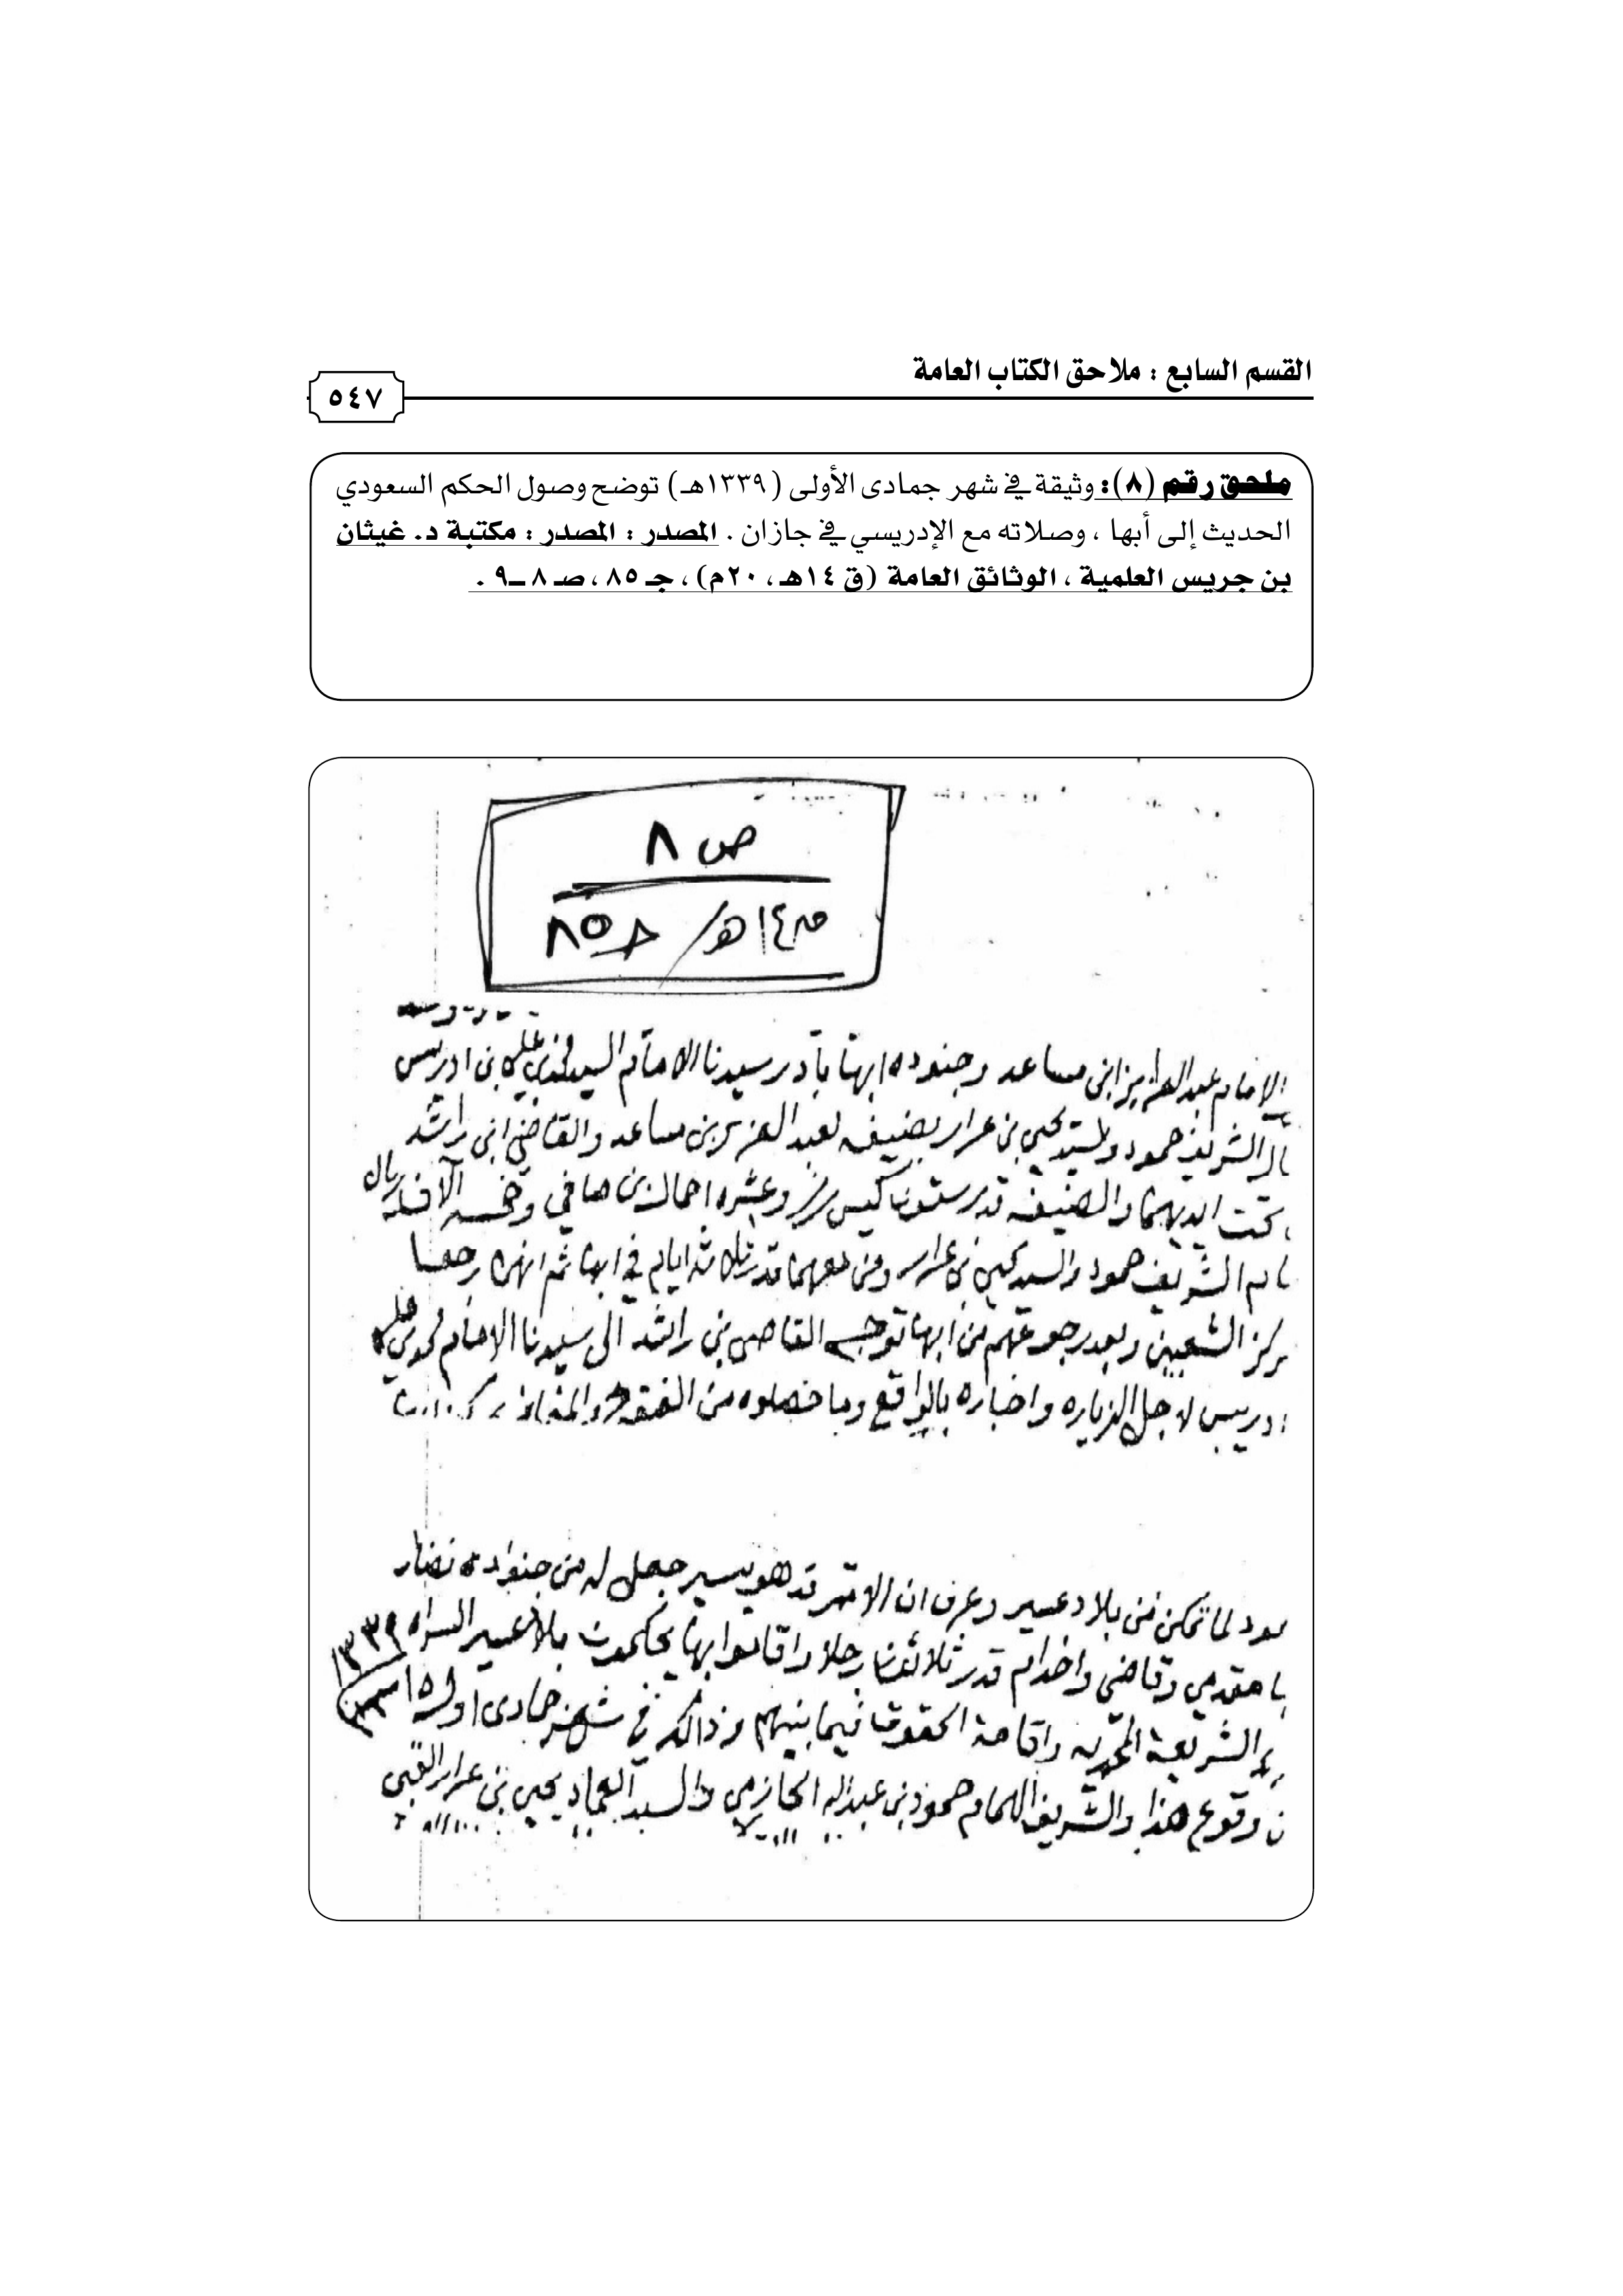 القسم السابع : ملاحق الكتاب العامة
٥٤٧
ملحق رقم (٨): وثيقة في شهر جمادى الأولى (١٣٣٩هـ) توضح وصول الحكم السعودي
الحديث إلى أبها ، وصلاته مع الإدريسي في جازان . المصدر : المصدر : مكتبة د. غيثان
بن جريس العلمية ، الوثائق العامة (ق ١٤هـ، ٢٠م)، جـ ٨٥، صـ ٨ ــ ٩ .
ص ٨
ق ١٤هـ/ جـ ٨٥
الامام عبد العزيز ابن مساعد وجنوده ابها بادر سيدنا الامام السيد محمد بن علي بن ادريس
الشريف حمود والسيد يحيى بن عرار بضيفه لعبد العزيز بن مساعد والقاضي ابن راشد
تحت ايديهما والضيفه قدر ستون كيس رز وعشره احمال بن صافي وخمسة آلاف ريال
الشريف حمود والسيد يحيى بن عرار ومن معهما قدر ثلاثه ايام في ابها ثم انهم رجعا
مركز الشعبين وبعد رجوعهم من ابها توجه القاضي بن راشد الى سيدنا الامام محمد بن علي
ادريس لاجل الزياره واخباره بالواقع وما حصلوه من
لما تمكن من بلاد عسير وعرف ان الامر قد هو يسير جعل له من جنوده
مقدمي وقاضي واخدام قدر ثلاثون رجلا واقاموا بها يحكمون بلاد عسير السراه ١٣٣٩
الشريعة المحمديه واقامة الحقوق فيما بينهم وذالك في شهر جمادى اول
وقوع هذا والشريف الهمام حمود بن عبدالله الحازمي والسيد العماد يحيى بن عرار